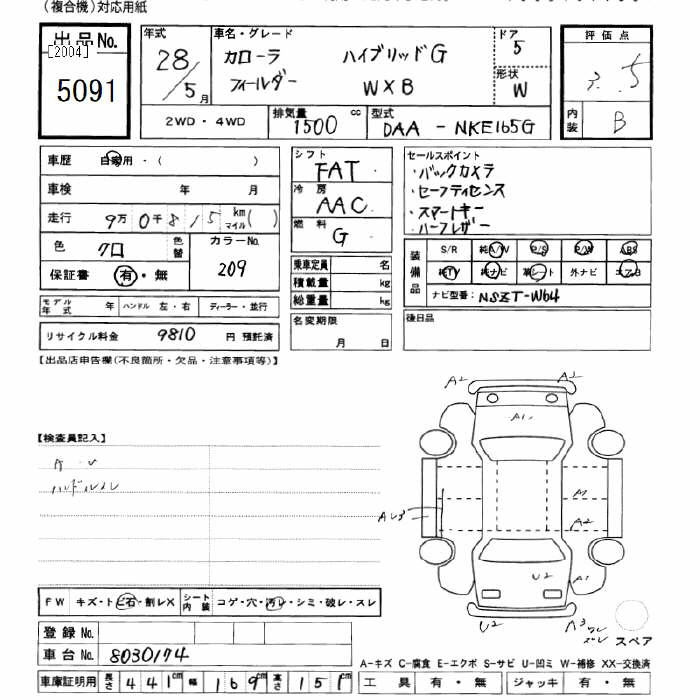 (複合機)対応用紙
出品No.
[2004]
5091
年式
28/5月
車名・グレード
カローラ ハイブリッドG
フィールダー WXB
ドア
5
形状
W
評価点
3.5
内装
B
2WD・4WD
排気量
1500 cc
型式
DAA-NKE165G
車歴 自家用・( )
車検 年 月
走行 9万0千815 km マイル( )
色 クロ 色替
カラーNo.
209
保証書 有・無
モデル年式 年 ハンドル 左・右 ディーラー・並行
リサイクル料金 9810 円 預託済
シフト
FAT
冷房
AAC
燃料
G
乗車定員 名
積載量 kg
総重量 kg
名変期限
月 日
セールスポイント
・バックカメラ
・セーフティセンス
・スマートキー
・ハーフレザー
装備品
S/R 純A/W P/S P/W ABS
純TV 純ナビ 革シート 外ナビ エアB
ナビ型番: NSZT-W64
後日品
【出品店申告欄(不良箇所・欠品・注意事項等)】
【検査員記入】
A・U
ハンドルスレ
A2
A2
A1
A1
A2
U2
A1
U2
A3
スペア
FW キズ・トビ石・割レX シート内装 コゲ・穴・汚レ・シミ・破レ・スレ
登録No.
車台No. 8030174
車庫証明用 長さ 441cm 幅 169cm 高さ 151cm
A-キズ C-腐食 E-エクボ S-サビ U-凹ミ W-補修 XX-交換済
工具 有・無 ジャッキ 有・無